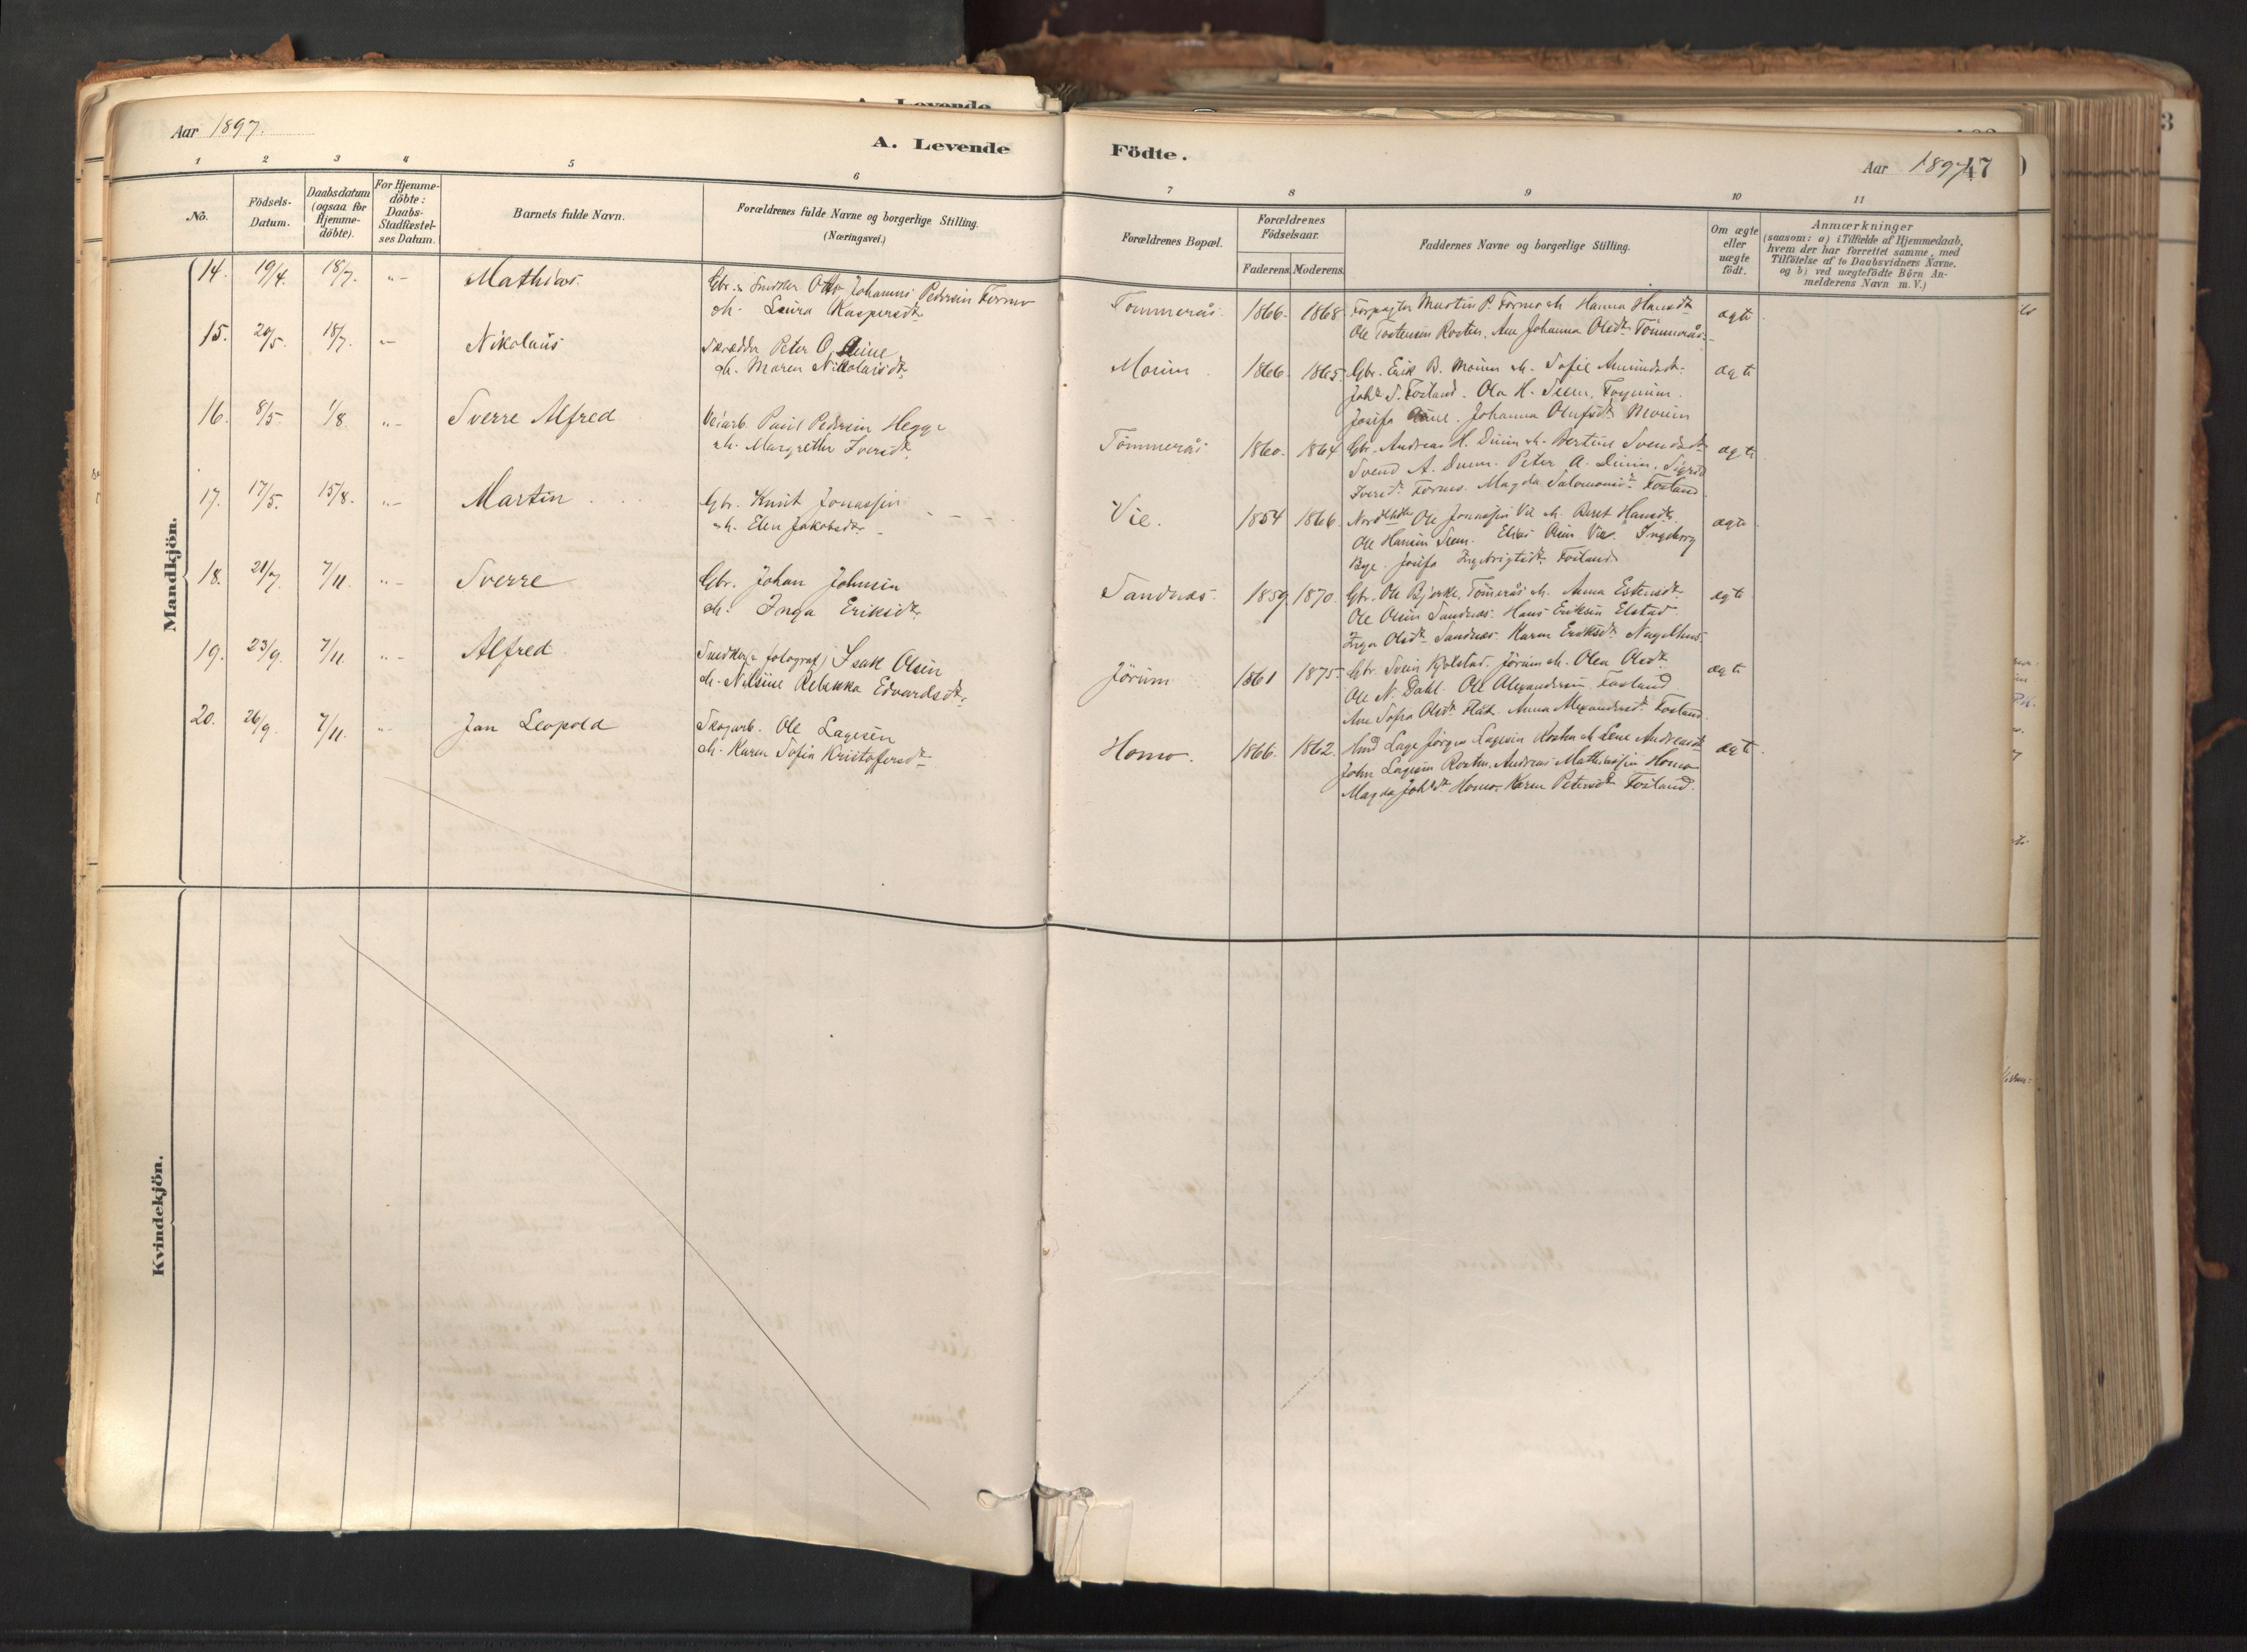 Aar 1897.
A. Levende
Födte.
Aar 1897.
47
1 2 3 4 5 6
7 8 9 10 11
No.
Födsels-
Datum.
Daabsdatum
(ogsaa for
Hjemme-
döbte).
For Hjemme-
döbte:
Daabs-
Stadfæstel-
ses Datum.
Barnets fulde Navn.
Forældrenes fulde Navne og borgerlige Stilling.
(Næringsvei.)
Forældrenes Bopæl.
Forældrenes
Födselsaar.
Faderens. Moderens.
Faddernes Navne og borgerlige Stilling.
Om ægte
eller
uægte
födt.
Anmærkninger
(saasom: a) i Tilfælde af Hjemmedaab,
hvem der har forrettet samme, med
Tilföielse af to Daabsvidners Navne.
og b) ved uægtefödte Börn An-
melderens Navn m. V.)
Mandkjön.
14. 19/4. 18/7. "- Mathias.
Gbr. Snedker Otto Johannes Pedersen Formo
Laura Kaspersdt.
Tømmerås. 1866. 1868. Forpagter Martin P. Formo Hanna Hansdt
ægte
Ole Tostensen Rosten. Ane Johanna Olsdt. Tömmerås.
15. 20/5. 18/7. "- Nikolaus
Skrædder Peter O.
Maren Nikolaisdt.
Moum. 1866. 1865. Gbr. Erik B. Moum Sofie Amundsdt.
ægte
Johs S. Fosland. Ola H. Seem,
Josefa Johanna Olufsdt. Moum
16. 8/5. 1/8. "- Sverre Alfred
Veiarb. Paul Pedersen Hegge
Margrethe Iversdt.
Tömmerås 1860. 1864 Gbr. Andreas H. Duun Bertine Svendsdt.
ægte
Svend A. Duun. Peter A. Duun. Sigrid
Iversdt. Formo. Magda Salomonsdt. Fosland.
17. 17/5. 15/8. "- Martin
Gbr. Knut Jonassen
Elen Jakobsdt.
Vie. 1854 1866. Ole Jonassen Vie Beret Hansdt.
ægte
Ole Hansen Seem. Elias Olsen Vie. Ingeborg
Bye. Josefa Ingebrigtsdt. Fosland.
18. 21/7. 7/11. "- Sverre
Gbr. Johan Johnsen
Inga Eriksdt.
Sandnæs. 1859. 1870. Gbr. Ole Bjørke, Tömerås Anna Estensdt.
ægte
Ole Olsen Sandnæs. Hans Eriksen Elstad.
Inga Olsdt. Sandnæs. Karen Eriksdt. Nagelhus.
19. 23/9. 7/11. "- Alfred
Snedker (fotograf) Isak Olsen
Nilsine Rebekka Edvardsdt.
Jörum 1861 1875. Gbr. Svein Kjolstad. Jörum Olea Olsdt
ægte
Ole N. Dahl. Ole Alexandersen Fosland
Ane Sofia Olsdt. Flåt. Anna Alexandersdt. Fosland.
20. 26/9. 7/11. "- Jan Leopold
Skogarb. Ole Lagesen
Karen Sofia Kristofersdt.
Homo. 1866. 1862. Lage Jörgen Lagesen Rosten Lene Andreasdt.
ægte
John Lagesen Rosten. Andreas Mathiassen Homo
Magda Johsdt. Homo. Karen Petersdt. Fosland.
Kvindekjön.